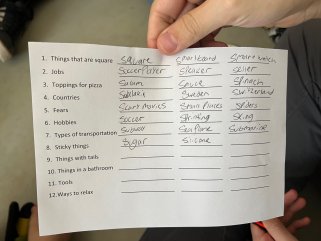 1. Things that are square Square Smartboard Smartwatch
2. Jobs Soccer Skier
3. Toppings for pizza Salami Sauce Spinach
4. Countries Sweden Switzerland
5. Fears Scary movies Small Places Spiders
6. Hobbies Soccer Skiing
7. Types of transportation Subway Sea Plane Submarine
8. Sticky things Sugar
9. Things with tails
10. Things in a bathroom
11. Tools
12. Ways to relax